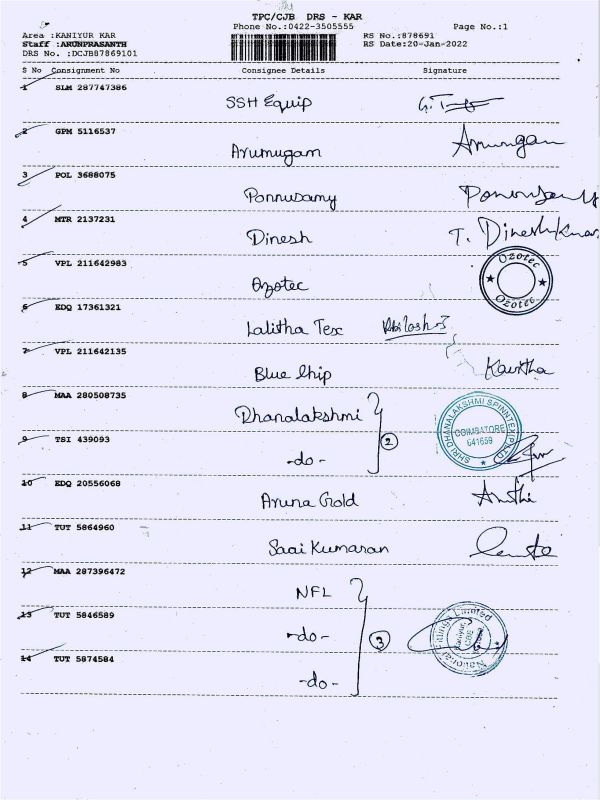 TPC/CJB DRS - KAR
Phone No.:0422-3505555 Page No.:1
Area :KANIYUR KAR RS No.:878691
Staff :ARUNPRASANTH RS Date:20-Jan-2022
DRS No. :DCJB87869101
S No Consignment No Consignee Details Signature
1 SLM 287747386
SSH Equip
2 GPM 5116537
Arumugam Arumugam
3 POL 3688075
Ponnusamy Ponnusamy
4 MTR 2137231
Dinesh T. Dineshkumar
5 VPL 211642983
Ozotec Ozotec Ozotec
6 EDQ 17361321
Lalitha Tex
7 VPL 211642135
Blue Chip Kavitha
8 MAA 280508735
Dhanalakshmi SHRI DHANALAKSHMI SPINNTEX (P) LTD COIMBATORE 641659
9 TSI 439093
-do- 2
10 EDQ 20556068
Aruna Gold
11 TUT 5864960
Saai Kumaran
12 MAA 287396472
NFL
13 TUT 5846589
-do- 3 National Fittings Limited
14 TUT 5874584
-do-